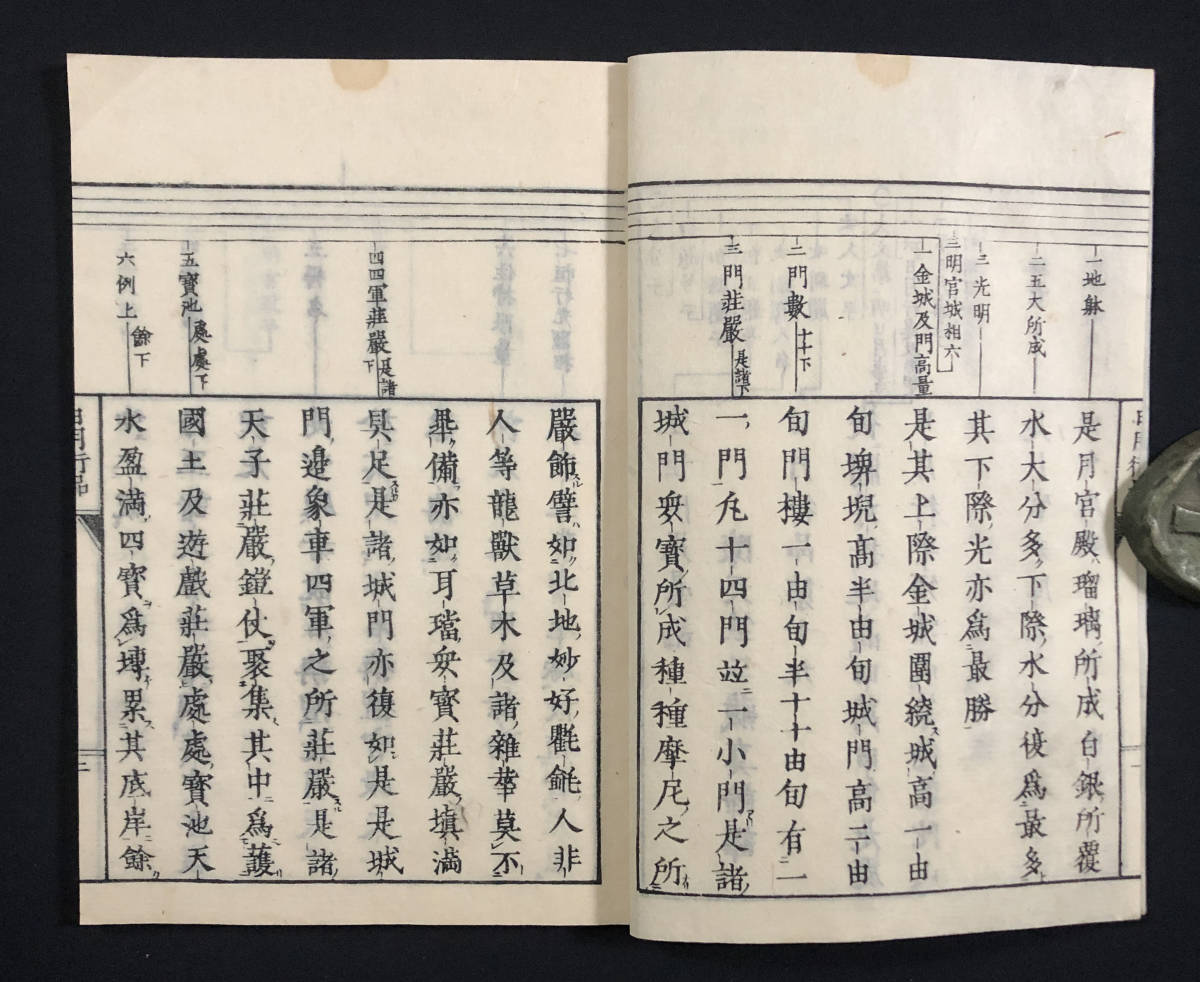 一地躰
二五大所成
三光明
三明官城相六
一金城及門高量
二門數 十十下
三門莊嚴 是諸下
是月宮殿瑠璃所成白銀所覆
水大分多下際水分復爲最多
其下際光亦爲最勝
是其上際金城圍繞城高一由
旬埤堄高半由旬城門高二由
旬門樓一由旬半十十由旬有二
一門凡十四門竝一小門是諸
城門衆寶所成種種摩尼之所
四四軍莊嚴 是諸下
五寶池 處處下
六例上 餘下
嚴飾譬如北地妙好氍毹人非
人等龍獸草木及諸雜華莫不
畢備亦如耳璫衆寶莊嚴填滿
具足是諸城門亦復如是是城
門邊象車四軍之所莊嚴是諸
天子莊嚴鎧仗聚集其中爲護
國土及遊戲莊嚴處處寶池天
水盈滿四寶爲塼累其底岸餘
日月行品
三